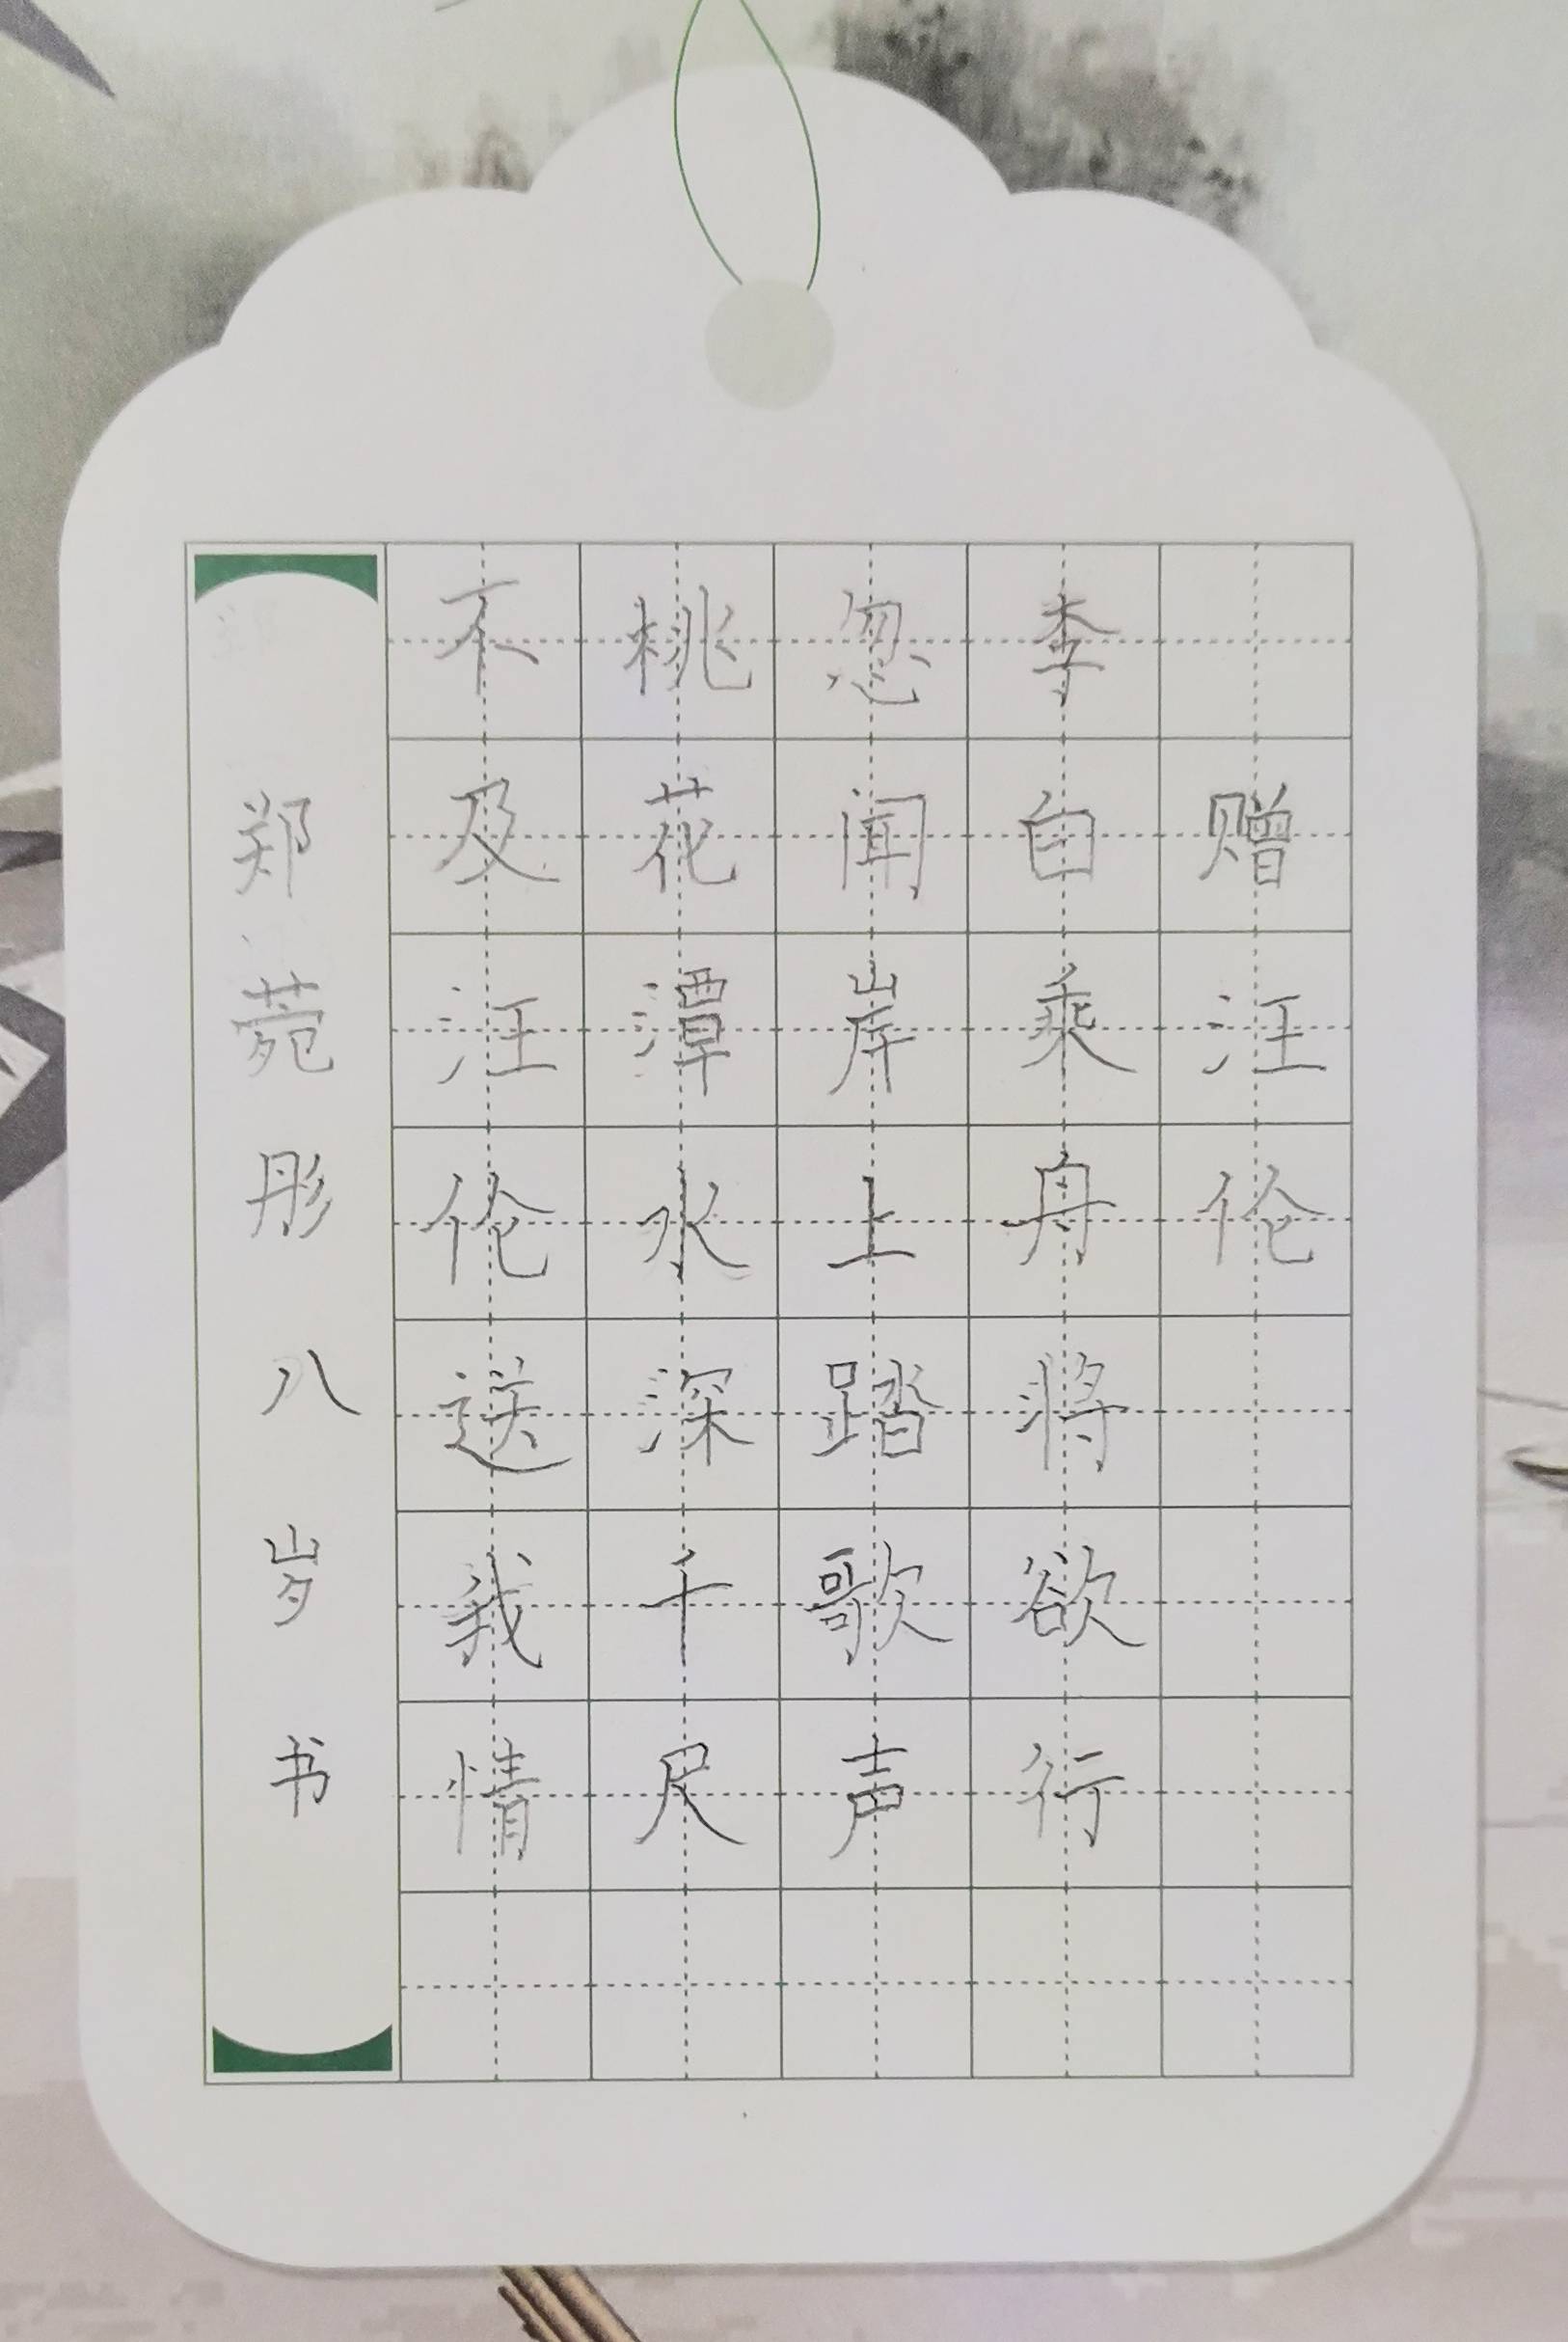 赠汪伦
李白乘舟将欲行
忽闻岸上踏歌声
桃花潭水深千尺
不及汪伦送我情
郑菀彤八岁书